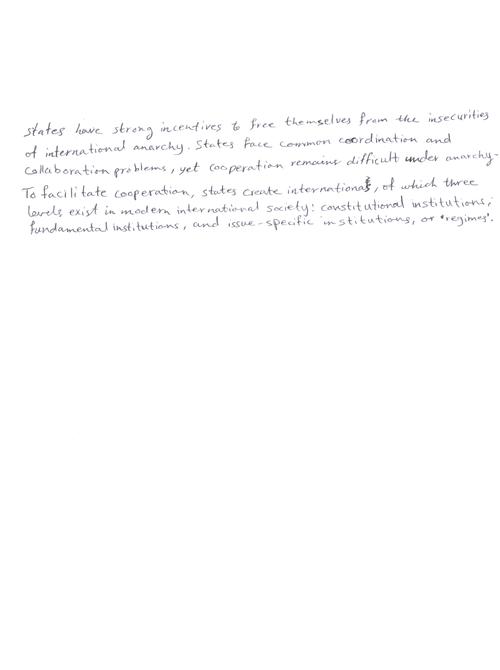 states have strong incentives to free themselves from the insecurities
of international anarchy. States face common coordination and
collaboration problems, yet cooperation remains difficult under anarchy.
To facilitate cooperation, states create internationals, of which three
levels exist in modern international society: constitutional institutions,
fundamental institutions, and issue-specific institutions, or 'regimes'.